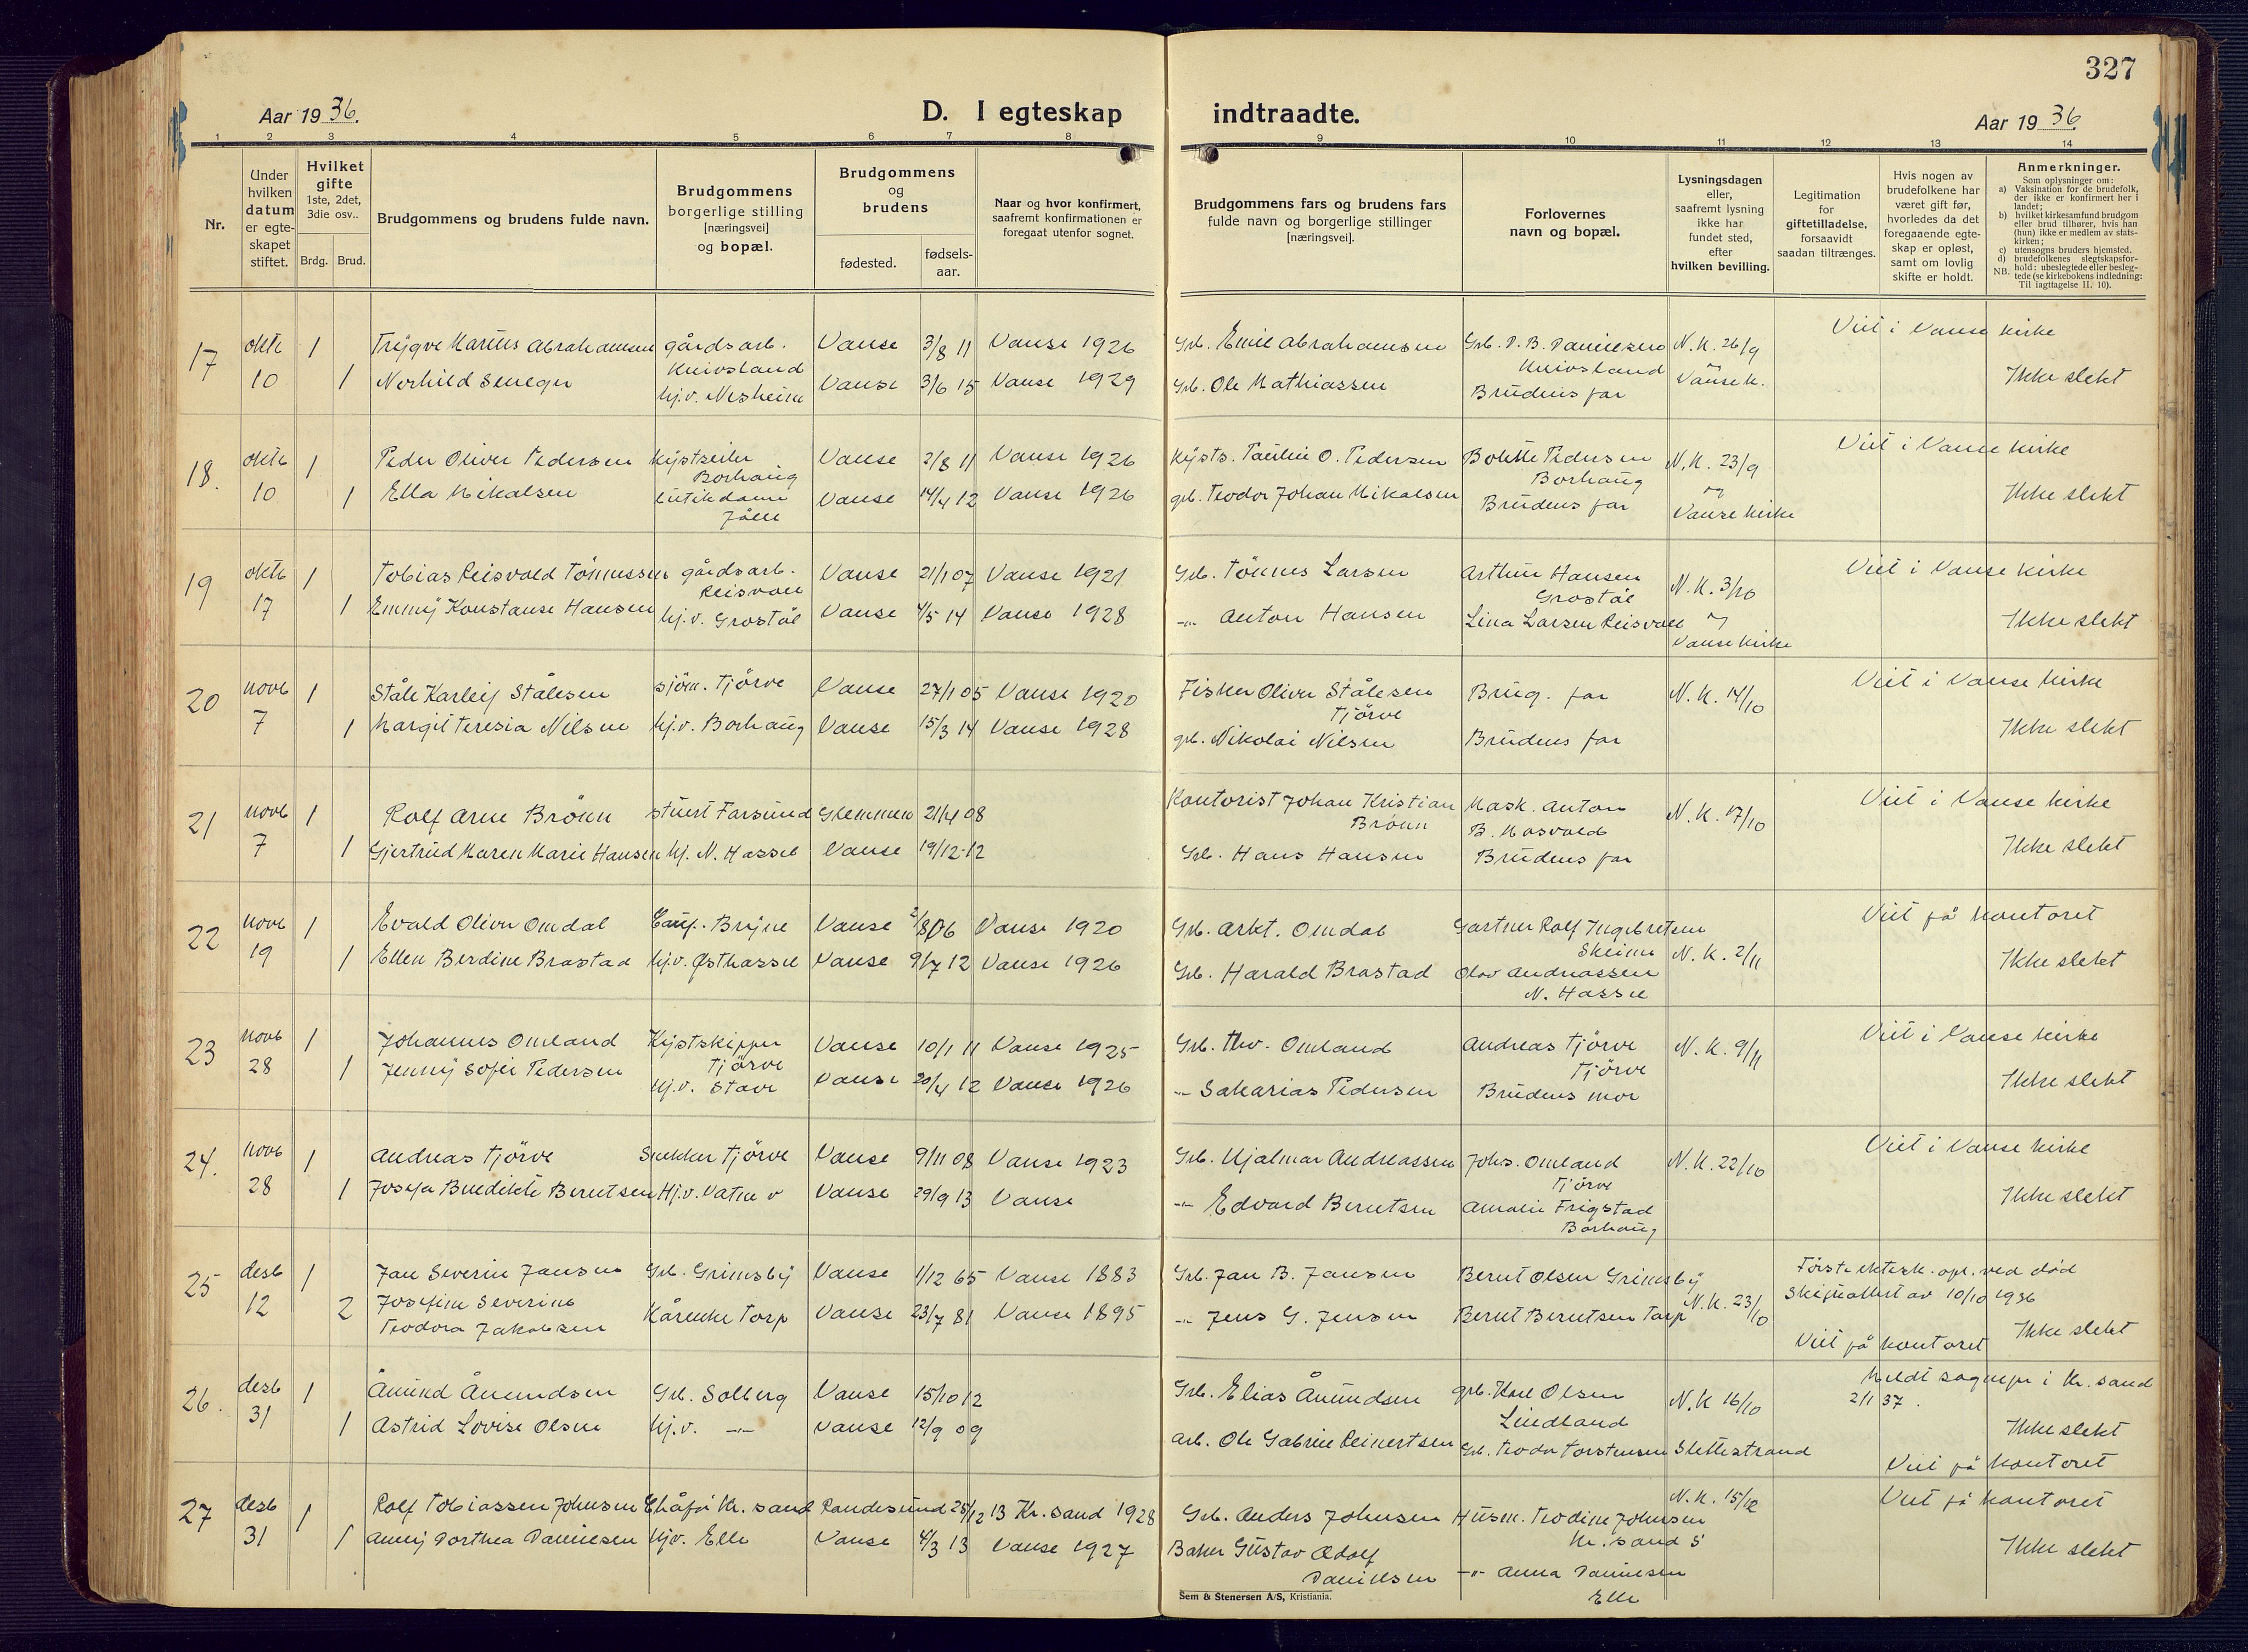 327
Aar 1936.
D. I egteskap indtraadte.
Aar 1936
1 2 3 4 5 6 7 8 9 10 11 12 13 14
Nr.
Under hvilken datum er egte-skapet stiftet.
Hvilket gifte 1ste, 2det, 3die osv..
Brdg. Brud.
Brudgommens og brudens fulde navn.
Brudgommens borgerlige stilling [næringsvei] og bopæl.
Brudgommens og brudens
fødested.
fødsels-aar.
Naar og hvor konfirmert, saafremt konfirmationen er foregaat utenfor sognet.
Brudgommens fars og brudens fars fulde navn og borgerlige stillinger [næringsvei].
Forlovernes navn og bopæl.
Lysningsdagen eller, saafremt lysning ikke har fundet sted, efter hvilken bevilling.
Legitimation for giftetilladelse, forsaavidt saadan tiltrænges.
Hvis nogen av brudefolkene har været gift før, hvorledes da det foregaaende egte-skap er opløst, samt om lovlig skifte er holdt.
Anmerkninger.
Som oplysninger om:
a) Vaksination for de brudefolk, der ikke er konfirmert her i landet;
b) hvilket kirkesamfund brudgom eller brud tilhører, hvis han (hun) ikke er medlem av stats-kirken;
c) utensogns bruders hjemsted.
d) brudefolkenes slegtskapsfor-hold: ubeslegtede eller besleg-tede (se kirkebokens indledning: Til iagttagelse II. 10).
NB.
17 oktb 1 Trygve Marius Abrahamsen gårdsarb. Vanse 3/8 11 Vanse 1926 Grb. Emil Abrahamsen Grb. D. B. Danielsen N.K. 26/9 Viet i Vanse kirke
Knivsland Knivsland
10 1 Norhild hj.v. Nesheim Vanse 3/6 15 Vanse 1929 Grb. Ole Mathiassen Brudens far Vanse k. Ikke slekt
18. oktb 1 Peder Oliver Pedersen Kystseiler Vanse 2/8 11 Vanse 1926 Kysts. Paulin O. Pedersen Bolette Pedersen N.K. 23/9 Viet i Vanse kirke
Borhaug Borhaug
10 1 Ella Mikalsen butikdame Vanse 14/4 12 Vanse 1926 grb. Teodor Johan Mikalsen Brudens far Vanse kirke Ikke slekt
Jølle
19 oktb 1 Tobias Reisvold Tönnessen gårdsarb. Vanse 21/1 07 Vanse 1921 Grb. Tönnes Larsen Arthur Hansen N.K. 3/10 Viet i Vanse kirke
Reisvoll Grostøl
17 1 Emmy Konstanse Hansen hj.v. Grostøl Vanse 4/5 14 Vanse 1928 -"- Anton Hansen Lina Larsen Reisvoll Vanse kirke Ikke slekt
20 novb 1 Ståle Karleif Stålesen sjöm. Tjörve Vanse 27/1 05 Vanse 1920 Fisker Oliver Stålesen Brug. far N.K. 14/10 Viet i Vanse kirke
Tjörve
7 1 Margit Teresia Nilsen hj.v. Borhaug Vanse 15/3 14 Vanse 1928 grb. Nikolai Nilsen Brudens far Ikke slekt
21 novb 1 Rolf Arne Brönn stuert Farsund Glemmen 21/4 08 Kontorist Johan Kristian Mask. Anton N.K. 17/10 Viet i Vanse kirke
Brönn B. Mosvold
7 1 Gjertrud Maren Marie Hansen hj. N. Hassel Vanse 19/12-12 Grb. Hans Hansen Brudens far Ikke slekt
22 novb 1 Evald Oliver Omdal Bryne Vanse 2/8 06 Vanse 1920 Grb. Omdal Gartner Rolf Ingebretsen Viet på kontoret
Skeime N.K. 2/11
19 1 Ellen Berdine Brastad hj.v. Østhassel Vanse 9/7 12 Vanse 1926 Grb. Harald Brastad Olav Andreassen Ikke slekt
N. Hassel
23 novb 1 Johannes Omland Kystskipper Vanse 10/1 11 Vanse 1925 Grb. Thv. Omland Andreas Tjörve N.K. 9/11 Viet i Vanse kirke
Tjörve Tjörve
28 1 Jenny Sofie Pedersen hj.v. Stave Vanse 20/4 12 Vanse 1926 -"- Sakarias Pedersen Brudens mor Ikke slekt
24. novb 1 Andreas Tjörve Snekker Tjörve Vanse 9/11 08 Vanse 1923 Grb. Hjalmar Andreassen Johs. Omland N.K. 22/10 Viet i Vanse kirke
Tjörve
28 1 Josefa Benedikte Berntsen Hj.v. Vatne v Vanse 29/9 13 Vanse -"- Edvard Berntsen Amalie Frigstad Ikke slekt
Borhaug
25 desb 1 Jan Severin Jansen Grb. Grimsby Vanse 1/12 65 Vanse 1883 Grb. Jan B. Jansen Bernt Olsen Grimsby Förste ektesk. opl. ved död
Skifteattest av 10/10 1936
12 2 Josefine Severine Kårenke Torp Vanse 23/7 81 Vanse 1895 -"- Jens G. Jensen Bernt Berntsen Torp N.K. 23/10 Ikke slekt
Teodora Jakobsen Viet på kontoret
26. desb 1 Åmund Åmundsen Grb. Solberg Vanse 15/10 12 Grb. Elias Åmundsen grb. Karl Olsen N.K 16/10 Meldt sognepr i Kr. sand
Lindland 2/1 37.
31 1 Astrid Lovise Olsen hj.v. -"- Vanse 12/9 09 Arb. Ole Gabriel Reinertsen Grb. Teodor Torstensen Slettestrand Ikke slekt
Viet på kontoret
27 desb 1 Rolf Tobiassen Johnsen Kr. sand Randesund 25/12 13 Kr. sand 1928 Grb. Anders Johnsen Husm. Teodine Johnsen N.K. 15/12 Viet på kontoret
Kr. sand S
31 1 Anny Dorthea Danielsen hjv. Elle Vanse 4/3 13 Vanse 1927 Baker Gustav Adolf -"- Anna Danielsen Ikke slekt
Danielsen Elle
Sem & Stenersen A/S, Kristiania.